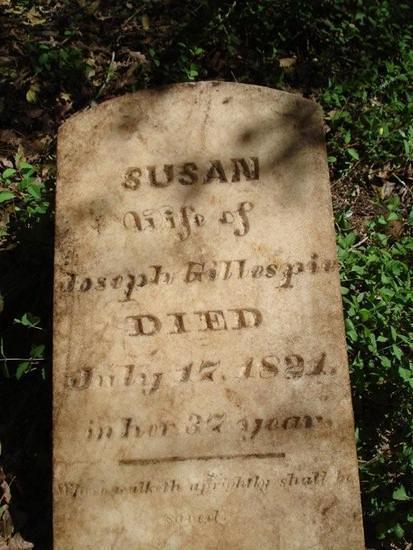 SUSAN
Wife of
Joseph Gillespie
DIED
July 17, 1821.
in her 37 year.
Whoso walketh uprightly shall be
saved.